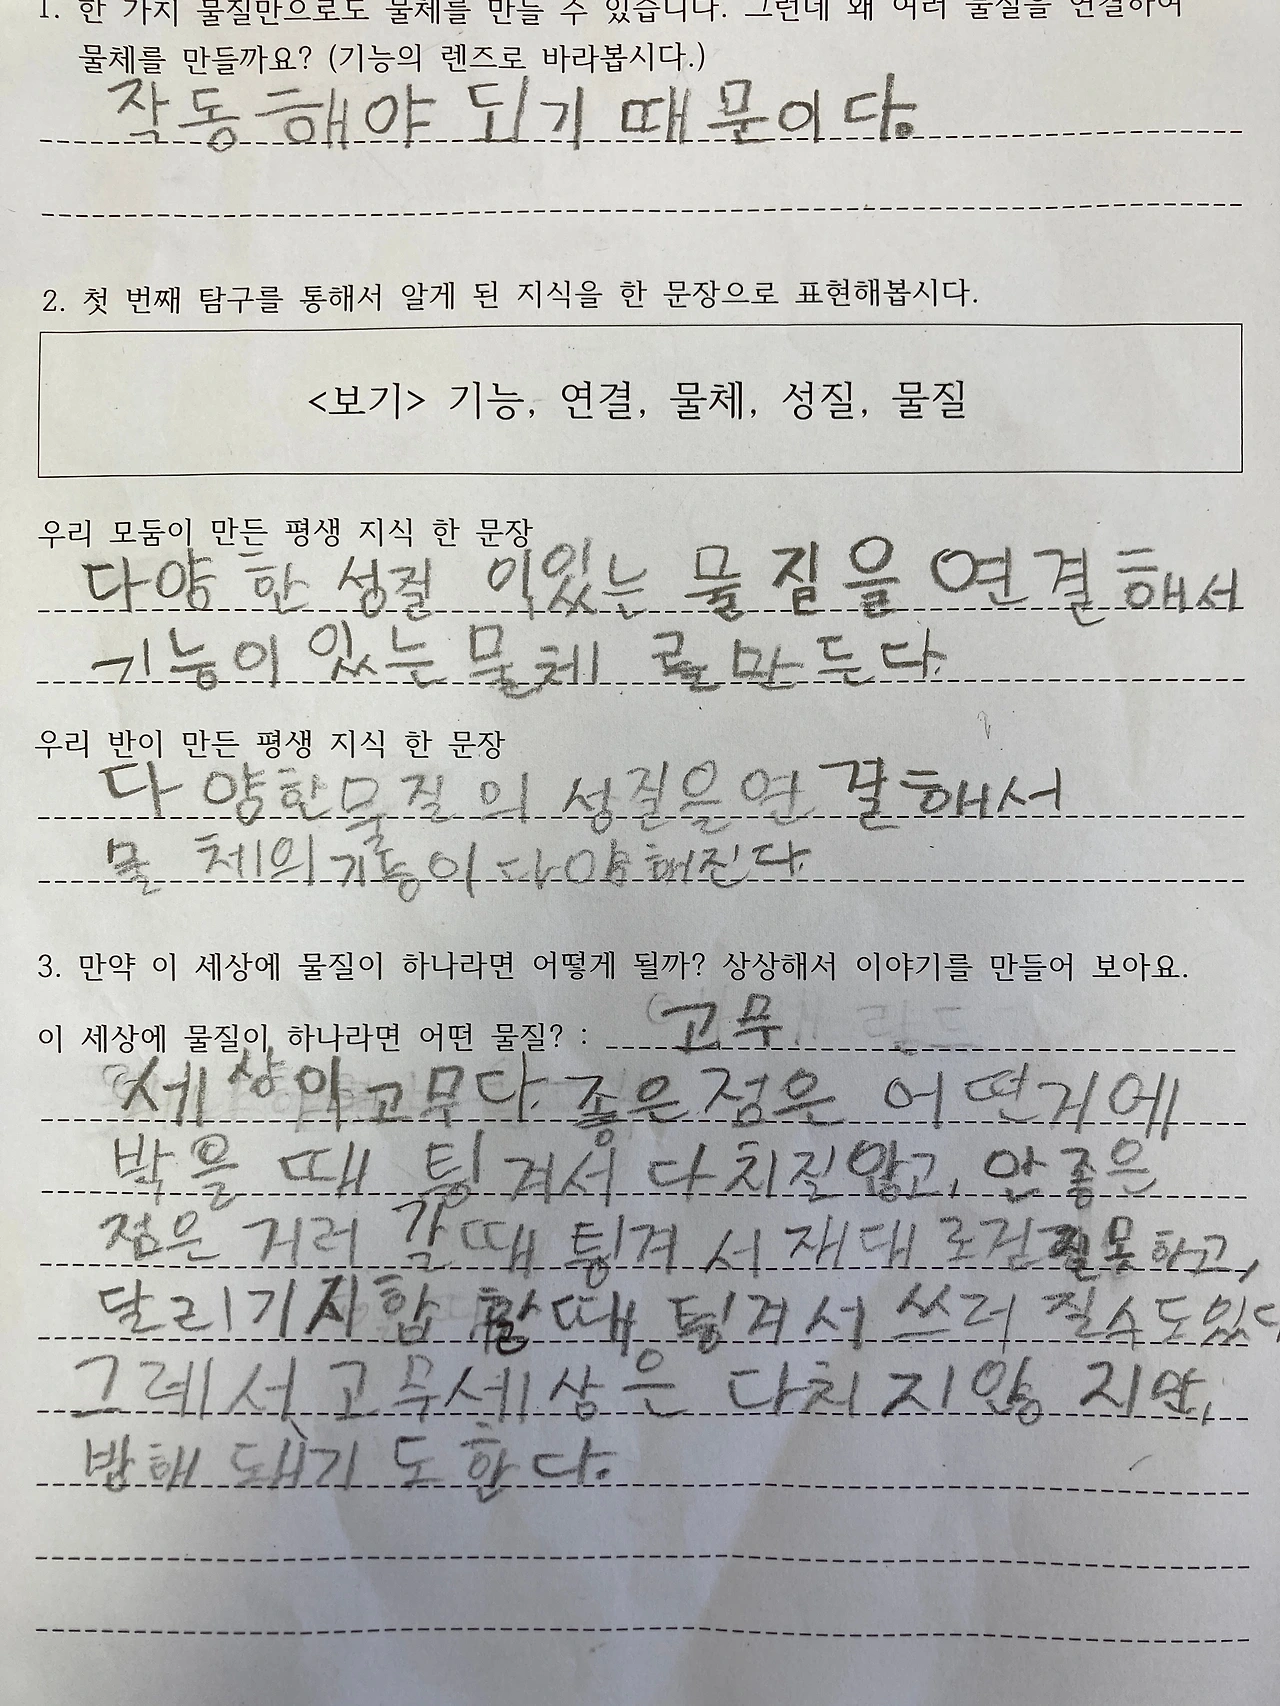 1. 한 가지 물질만으로도 물체를 만들 수 있습니다. 그런데 왜 여러 물질을 연결하여
물체를 만들까요? (기능의 렌즈로 바라봅시다.)
작동해야 되기 때문이다.
2. 첫 번째 탐구를 통해서 알게 된 지식을 한 문장으로 표현해봅시다.
<보기> 기능, 연결, 물체, 성질, 물질
우리 모둠이 만든 평생 지식 한 문장
다양한 성질 이있는 물질을 연결해서
기능이 있는 물체 를만든다.
우리 반이 만든 평생 지식 한 문장
다양한물질의 성질을연결해서
물체의기능이다양해진다.
3. 만약 이 세상에 물질이 하나라면 어떻게 될까? 상상해서 이야기를 만들어 보아요.
이 세상에 물질이 하나라면 어떤 물질? : 고무
세상이고무다. 좋은점은 어떤거에
박을 때 튕겨서 다치질않고, 안좋은
점은 거러 갈때 튕겨서 재대로걷질못하고,
달리기시합 할때 튕겨서 쓰러 질수도있다
그레서 고무세상은 다치지않 지만,
방해 돼기도 한다.